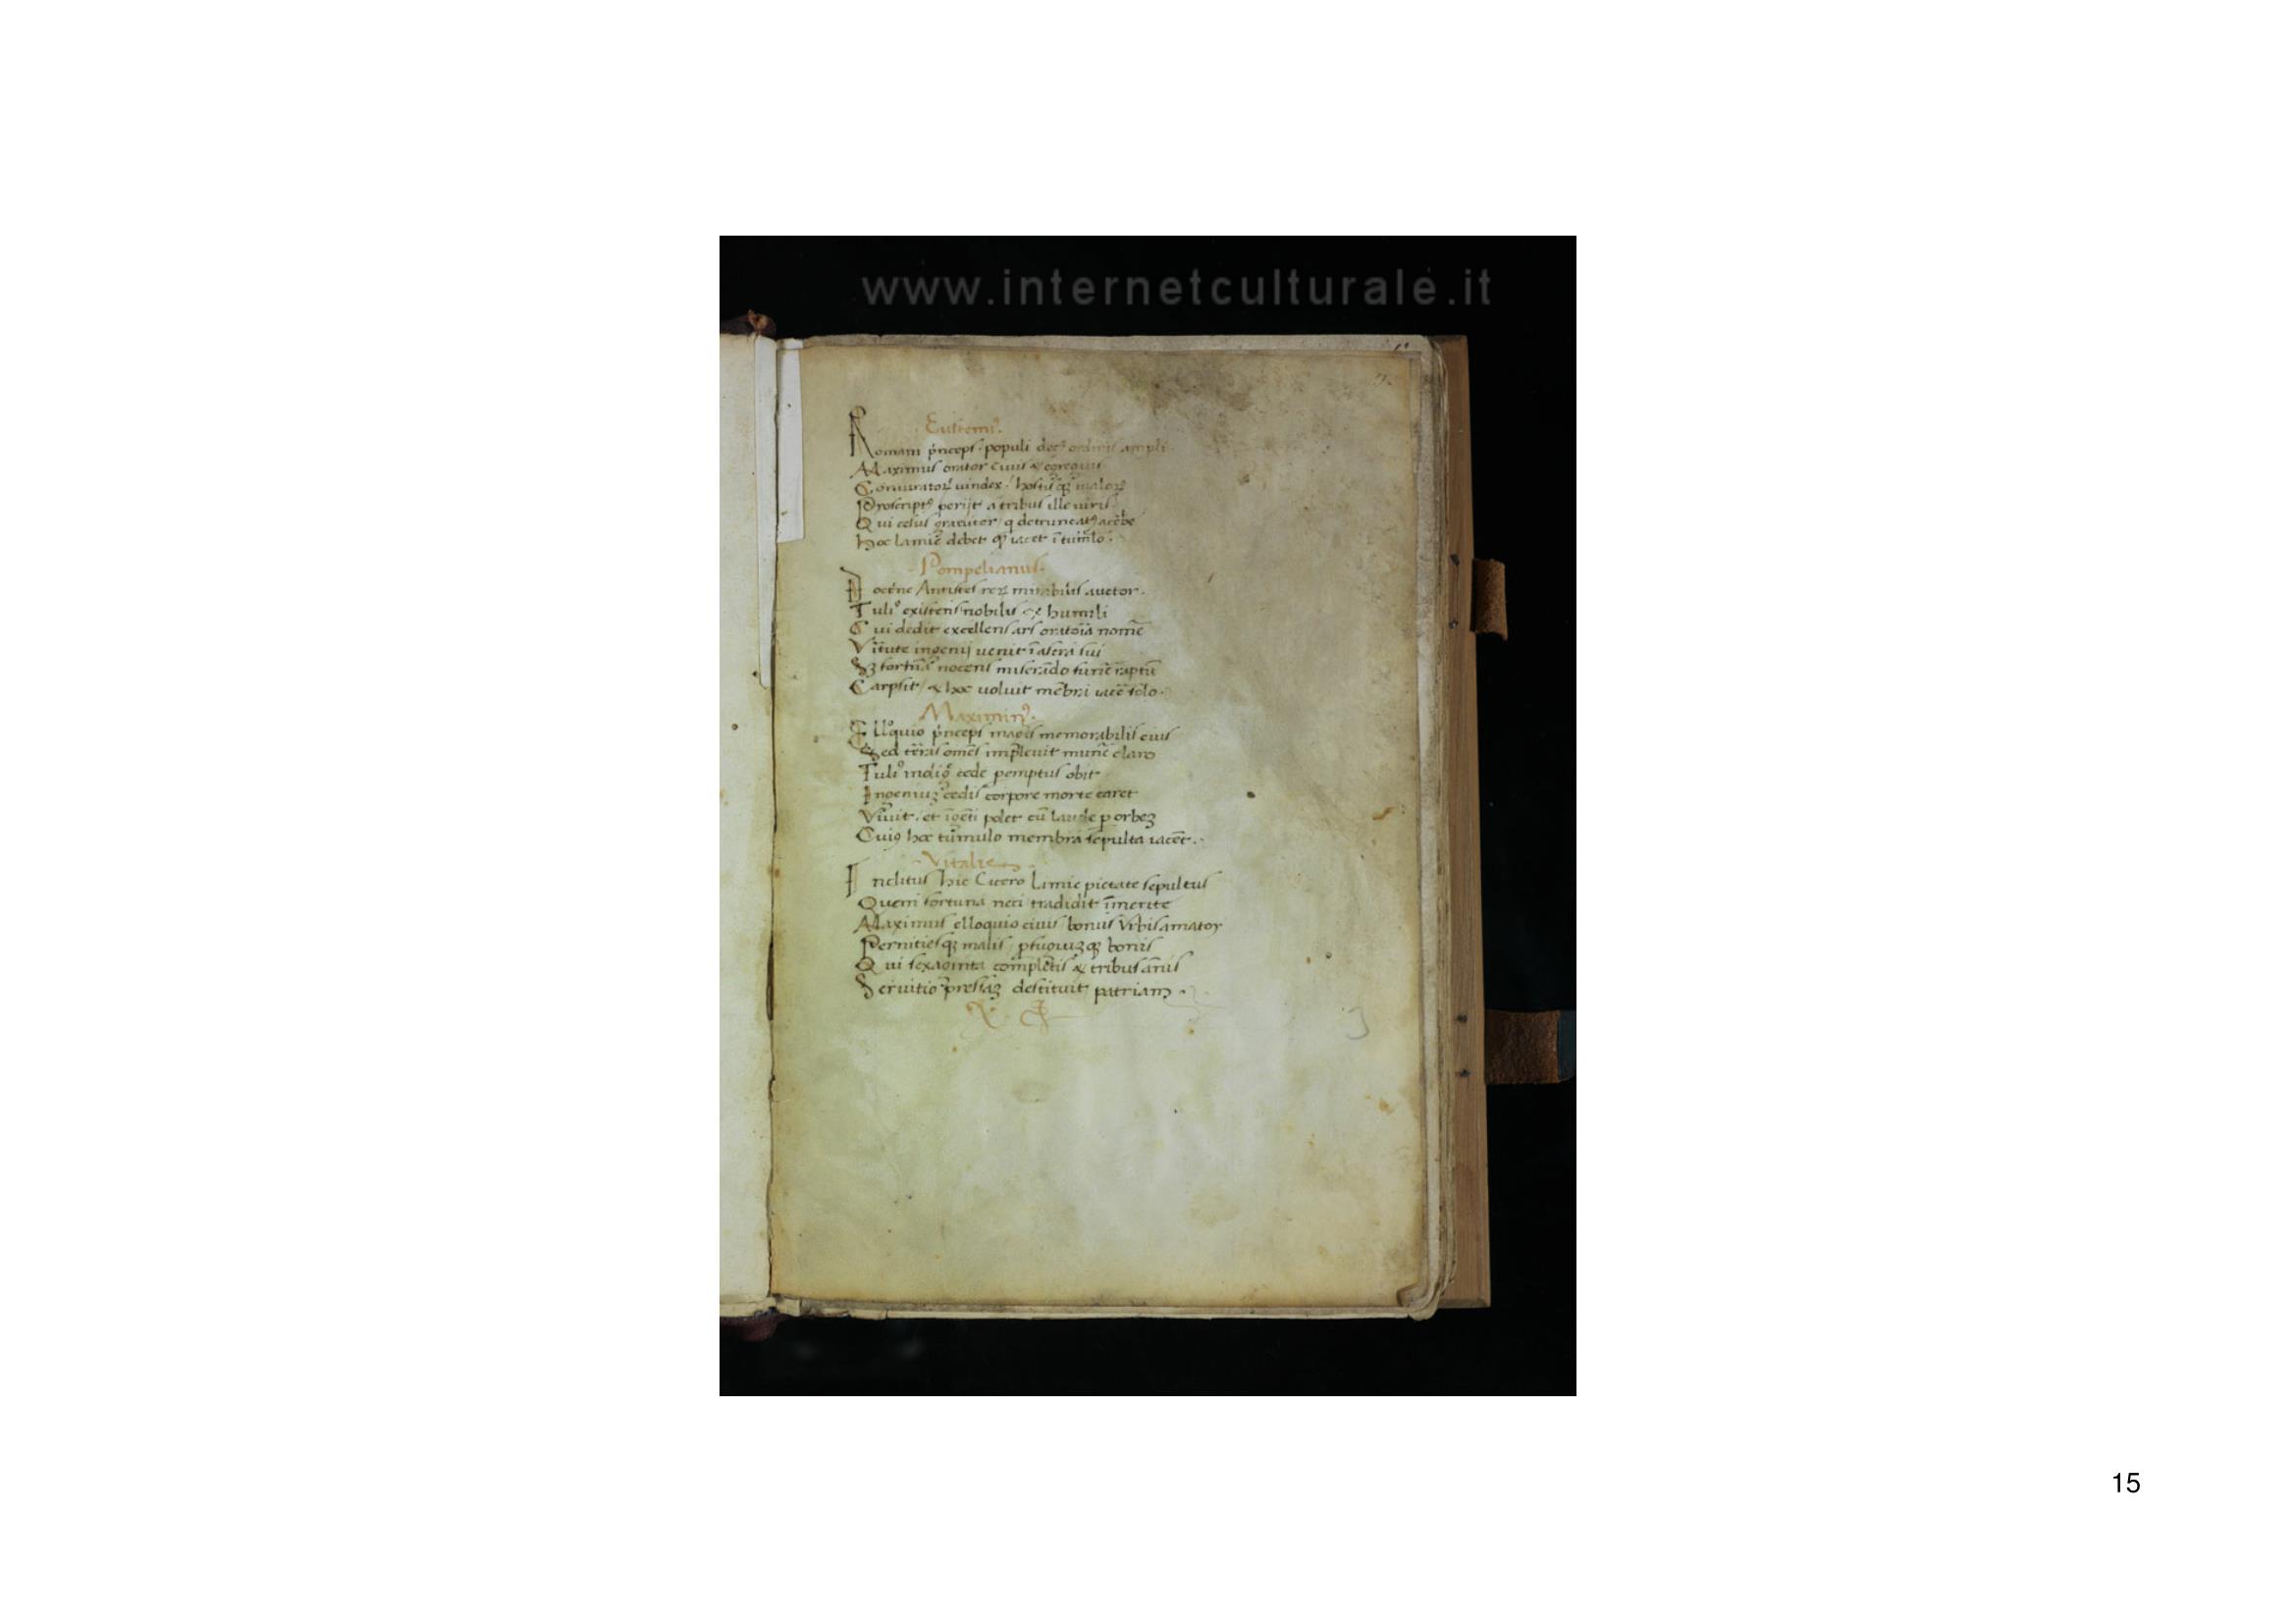 www.internetculturale.it
Eustemi⁹.
Romani p̄nceps populi dec⁹ ordinis ampli
Maximus orator Civis & egregius
Coniuratoꝝ vindex / hostisꝗꝫ maloꝝ
Proscript⁹ perijt a tribus ille viris
Qui celsus
hoc Lamie debet iacet ī tumlo.
- Pompelianus.
Antistes reꝝ mirabilis auctor.
Tuli⁹ existens nobilis & humili
Cui dedit excellens ars oratoia nomē
Vītute ingenij venit ī astra sui
Sꝫ nocens miserādo funē raptū
Carpsit / & hoc voluit mēbri iacē solo.
Maximin⁹.
Elloquio p̄nceps magis memorabilis eius
Sed terras omēs implevit munē claro
Tuli⁹ cede pemptus obit
Ingeniuꝫ cedis corpore morte caret
Vivit / et polet cū laude p orbeꝫ
Cui⁹ hoc tūmulo membra sepulta iacēt.
- Vitalis
Inclitus hic Cicero Lamie pietate sepultus
Quem fortuna neci tradidit īmerite
Maximus elloquio civis / bonus Vrbis amator
Pernitiesꝗꝫ malis / pfugiuꝫꝗꝫ bonis
Qui sexaginta completis & tribus ānis
Servitio pressaꝫ destituit patriam.
15